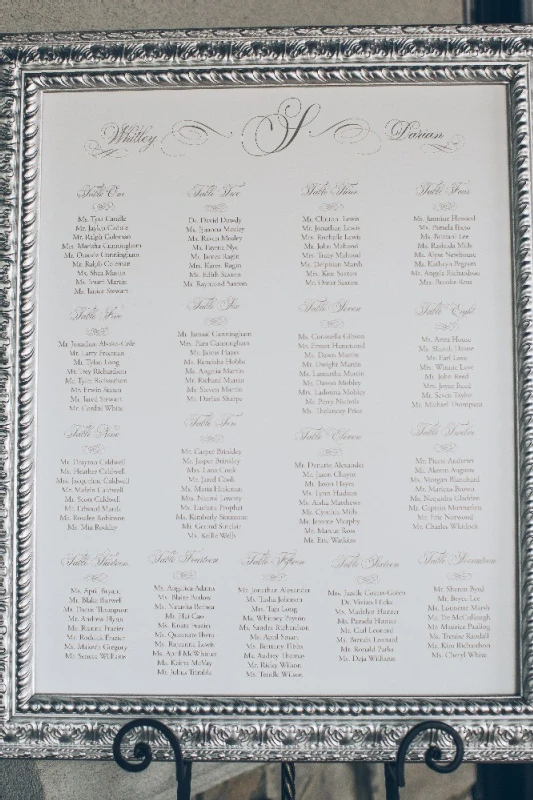 Whitley S Darian
Table One
Ms. Tyra Caudle
Mr. Jaylen Caudle
Mr. Ralph Coleman
Mrs. Marisha Cunningham
Mr. Quincie Cunningham
Ms. Ralph Coleman
Ms. Shea Martin
Ms. Stuart Martin
Ms. Janice Stewart
Table Two
Dr. David Dowdy
Ms. Tyianna Mosley
Ms. Raven Mosley
Ms. Fayena Nye
Mr. James Ragin
Mrs. Karen Ragin
Ms. Edith Saxton
Mr. Raymond Saxton
Table Three
Mr. Clinton Lewis
Mr. Jonathan Lewis
Mrs. Rochelle Lewis
Mr. John Mahood
Mrs. Tracy Mahood
Mr. Delphman Marsh
Mrs. Kim Saxton
Mr. Omar Saxton
Table Four
Ms. Jasmine Howard
Ms. Pamela Hicks
Ms. Brittani Lee
Ms. Rashida Mills
Ms. Alyse Newhouse
Ms. Kathryn Pegram
Ms. Angela Richardson
Mrs. Brooke Ross
Table Five
Mr. Jonathan Aboko-Cole
Mr. Larry Freeman
Mr. Tylan Long
Mr. Trey Richardson
Mr. Tyler Richardson
Mr. Erwin Staton
Mr. Jared Stewart
Mr. Cordas White
Table Six
Mr. Jamaal Cunningham
Mrs. Pam Cunningham
Mr. James Hayes
Ms. Ranaisha Hobbs
Ms. Angenia Martin
Mr. Richard Martin
Mr. Steven Martin
Mr. Darius Sharpe
Table Seven
Ms. Coronella Gibson
Mr. Ernest Hammond
Ms. Dawn Martin
Mr. Dwight Martin
Ms. Lamarsha Martin
Ms. Dawon Mobley
Mrs. Ladonna Mobley
Mr. Perry Nichols
Ms. Thelonious Price
Table Eight
Ms. Anna House
Ms. Sharah House
Mr. Earl Love
Mrs. Winnie Love
Mr. John Reed
Mrs. Joyce Reed
Mr. Seven Taylor
Mr. Michael Thompson
Table Nine
Mr. Draymon Caldwell
Ms. Heather Caldwell
Mrs. Jacqueline Caldwell
Mr. Melvin Caldwell
Mr. Scott Caldwell
Mr. Edward Marsh
Ms. Rosalee Robinson
Ms. Mia Rookley
Table Ten
Mr. Casper Brinkley
Mr. Jasper Brinkley
Mrs. Lana Cook
Mr. Jared Cook
Ms. Maria Hickman
Mrs. Naomi Lowery
Ms. Luchana Prophet
Ms. Kimberly Simmons
Mr. Gerard Sinclair
Ms. Keillo Wells
Table Eleven
Mr. Demario Alexander
Mr. Jason Clayter
Mr. Jason Hayes
Ms. Lynn Hudson
Ms. Aisha Matthews
Ms. Cynthia Mills
Mr. Jerome Murphy
Mr. Marcus Ross
Mr. Eric Watkins
Table Twelve
Mr. Pharn Anderson
Mr. Akeem Auguste
Ms. Morgan Blanchard
Ms. Maticia Brown
Ms. Nehandra Gladden
Mr. Captain Munnerlyn
Mr. Eric Norwood
Mr. Charles Whitlock
Table Thirteen
Ms. April Bryant
Mr. Blake Barwell
Ms. Darrin Thompson
Mr. Andrew Flynn
Ms. Bianca Frazier
Mr. Roderick Frazier
Ms. Makeda Gregory
Mr. Seneca Williams
Table Fourteen
Ms. Angelica Adams
Mr. Blaire Barlow
Ms. Natausha Bethea
Mr. Hall Cato
Mr. Kristin Frazier
Mr. Quatavius Ibero
Ms. Rayianna Lewis
Ms. April McWhirter
Ms. Keirra McVay
Mr. Joshua Trumble
Table Fifteen
Mr. Jonathar Alexander
Ms. Tasha Johnson
Mrs. Taja Long
Ms. Whitney Peyton
Ms. Sandra Richardson
Ms. April Stuart
Ms. Brittany Thoss
Ms. Audrey Thomas
Mr. Ricky Wilson
Mr. Terelle Wilson
Table Sixteen
Mrs. Janelle Groton-Gores
Dr. Vivian Hicks
Ms. Madelyn Hunter
Ms. Pamela Hunter
Mr. Carl Leonard
Ms. Brenda Leonard
Mr. Ronald Parks
Ms. Deja Williams
Table Seventeen
Mr. Sharon Byrd
Mr. Boyce Lee
Ms. Leonette Marsh
Mr. Tre McCullough
Ms. Maurica Pouling
Ms. Trenise Randall
Mr. Kim Richardson
Ms. Cheryl White